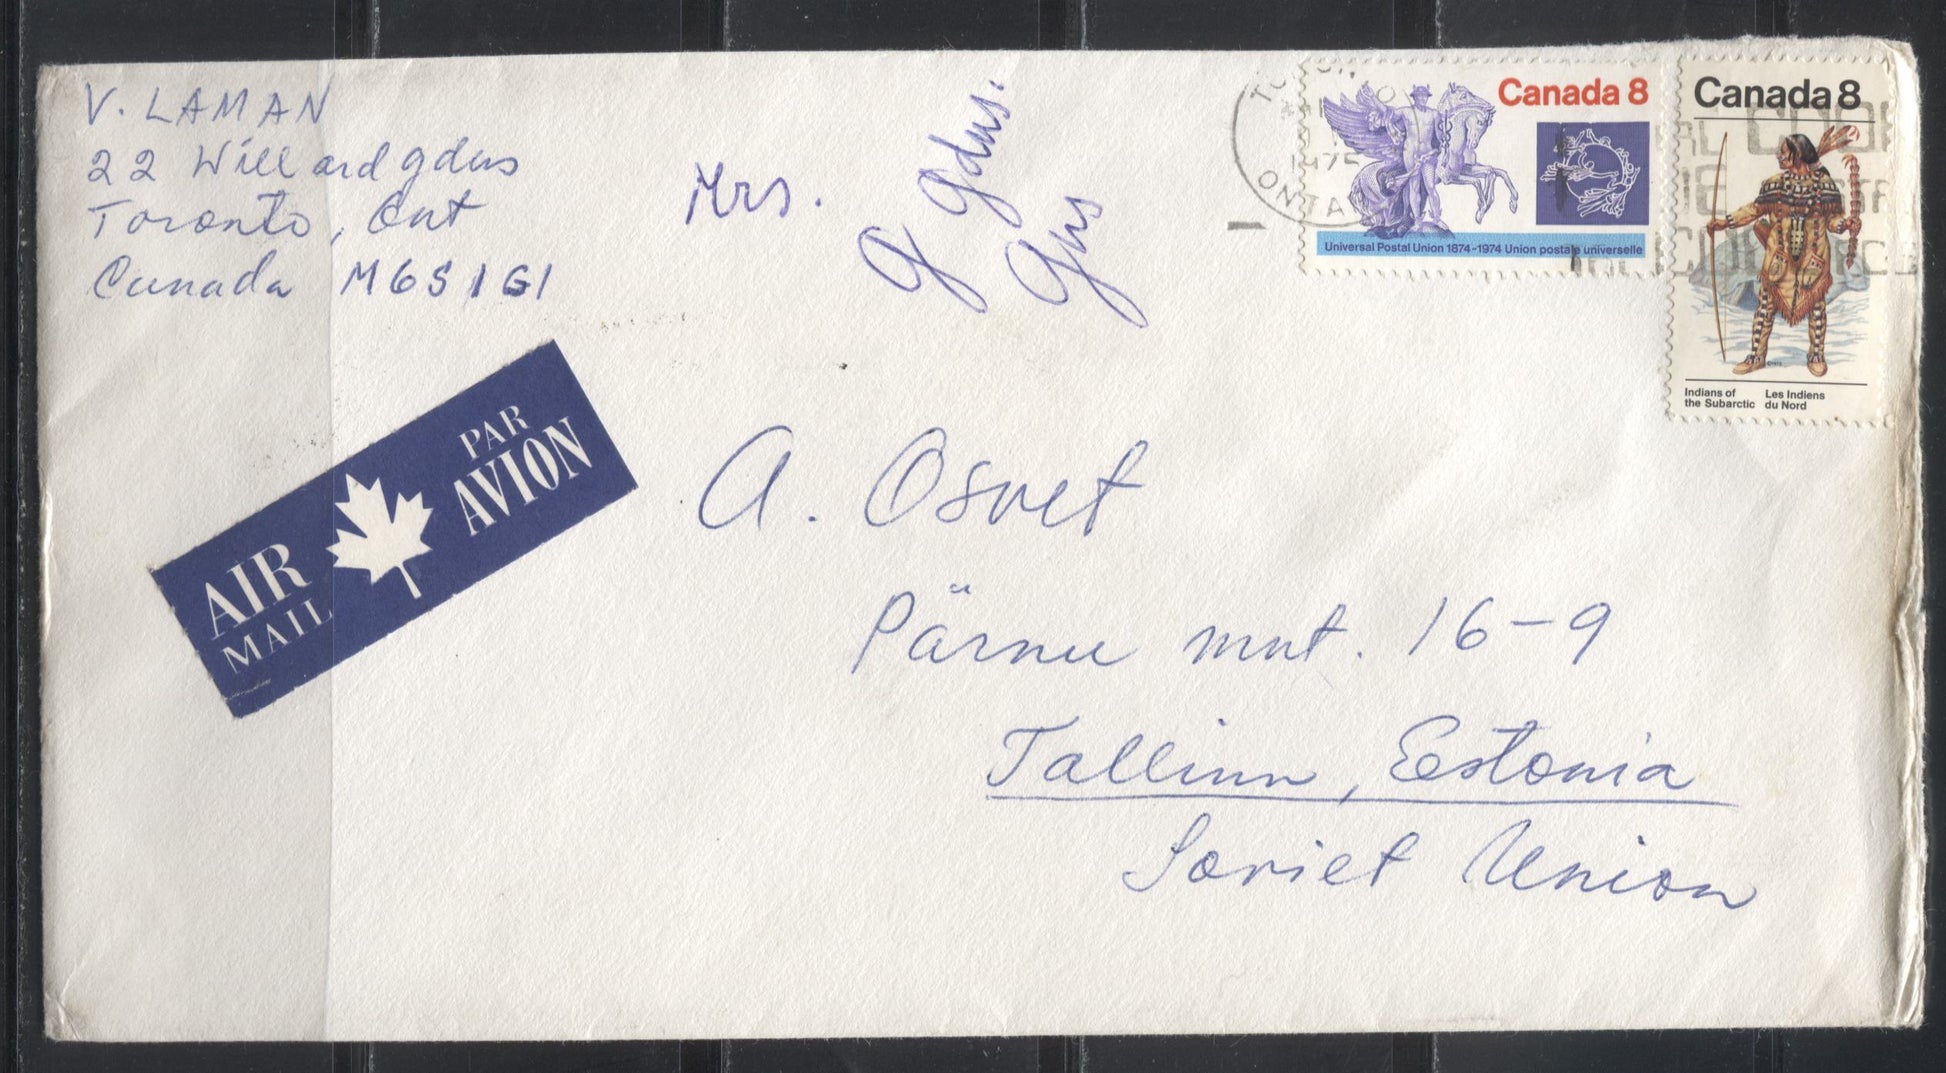 V. LAMAN
22 Willard gdns
Toronto, Ont
Canada M6S 1G1
Mrs.
g gdns.
gns
ONTA
1975
Canada 8
Universal Postal Union 1874-1974 Union postale universelle
Canada 8
Indians of the Subarctic
Les Indiens du Nord
AIR MAIL
PAR AVION
A. Osvet
Pärnu mnt. 16-9
Tallinn, Eestonia
Soviet Union